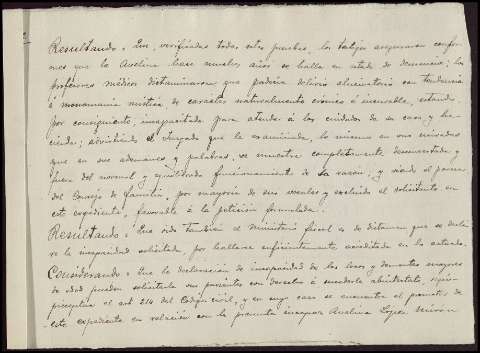 Resultando: Que, verificadas todas estas pruebas, los testigos aseguraron confor-
mes que la Avelina hace muchos años se halla en estado de demencia; los
profesores médicos dictaminaron que padecía delirio alucinatorio con tendencia
á monomanía mística de carácter naturalmente crónico é incurable, estando,
por consiguiente, incapacitada para atender á los cuidados de su casa y ha-
cienda; advirtiendo el Juzgado que la examinada, lo mismo en sus miradas
que en sus ademanes y palabras, se muestra completamente desconcertada y
fuera del normal y equilibrado funcionamiento de la razón; y siendo el parecer
del Consejo de familia, por mayoría de sus vocales y excluido el solicitante en
este expediente, favorable á la petición formulada.
Resultando: Que oído también el Ministerio fiscal es de dictamen que se decla-
re la incapacidad solicitada, por hallarse suficientemente acreditada en lo actuado.
Considerando: Que la declaración de incapacidad de los locos y dementes mayores
de edad pueden solicitarla sus parientes con derecho á sucederle abintestato, según
preceptúa el art. 214 del Código civil, y en cuyo caso se encuentra el promotor de
este expediente en relación con la presunta incapaz Avelina López